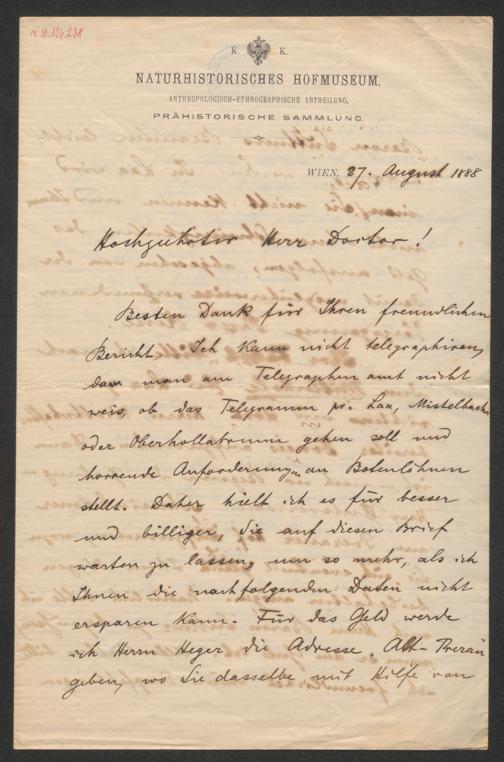 K. K.
NATURHISTORISCHES HOFMUSEUM.
ANTHROPOLOGISCH-ETHNOGRAPHISCHE ABTHEILUNG.
PRÄHISTORISCHE SAMMLUNG
WIEN, 27. August 1888
Hochgeehrter Herr Doctor!
Besten Dank für Ihren freundlichen
Bericht. Ich kann nicht telegraphiren,
da man am Telegraphenamt nicht
weis, ob das Telegramm pr. Laa, Mistelbach
oder Oberhollabrunn gehen soll und
horrende Anforderungen an Botenlöhnen
stellt. Daher hielt ich es für besser
und billiger, Sie auf diesen Brief
warten zu lassen, um so mehr, als ich
Ihnen die nachfolgenden Daten nicht
ersparen kann. Für das Geld werde
ich Herrn Heger die Adresse Alt-Prerau
geben, wo Sie dasselbe mit Hilfe von